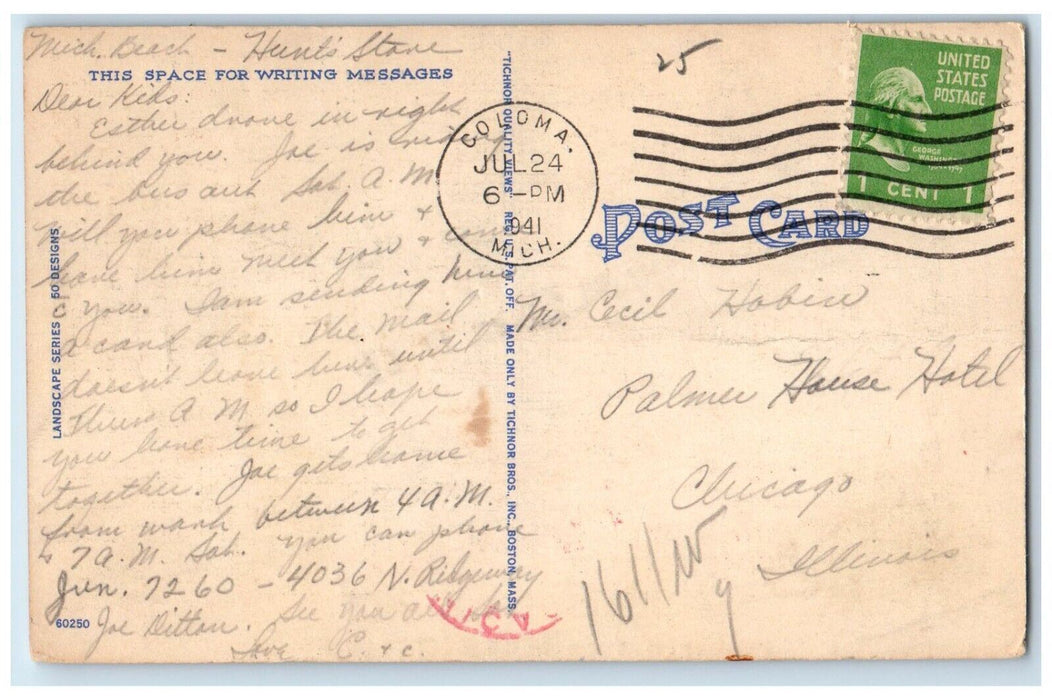 Mich. Beach - Hunt's Store
THIS SPACE FOR WRITING MESSAGES
Dear Kids:
Esther drove in right
behind you. Joe is riding
the bus out Sat. A.M.
Will you phone him &
have him meet you & come
c you. I am sending him
a card also. The mail
doesn't leave here until
Thurs A.M. so I hope
you have time to get
together. Joe gets home
from work between 4 A.M.
& 7 A.M. Sat. You can phone
Jun. 7260 - 4036 N. Ridgeway
Joe Ditton. See you all
Love C. & C.
60250
LANDSCAPE SERIES 50 DESIGNS
"TICHNOR QUALITY VIEWS" REG. U.S. PAT. OFF. MADE ONLY BY TICHNOR BROS., INC., BOSTON, MASS.
25
COLOMA.
JUL 24
6-PM
1941
MICH.
UNITED
STATES
POSTAGE
GEORGE
WASHINGTON
1 CENT 1
POST CARD
Mr. Cecil Hobin
Palmer House Hotel
Chicago
Illinois
1611